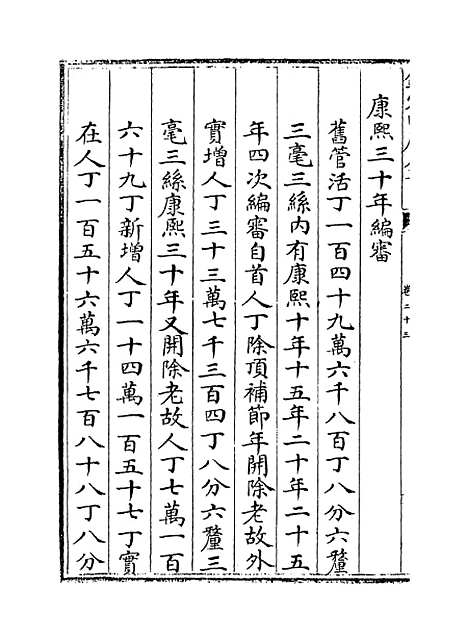 卷二十三
康熙三十年編審
舊管活丁一百四十九萬六千八百丁八分六釐
三毫三絲內有康熙十年十五年二十年二十五
年四次編審自首人丁除頂補節年開除老故外
實增人丁三十三萬七千三百四丁八分六釐三
毫三絲康熙三十年又開除老故人丁七萬一百
六十九丁新增人丁一十四萬一百五十七丁實
在人丁一百五十六萬六千七百八十八丁八分